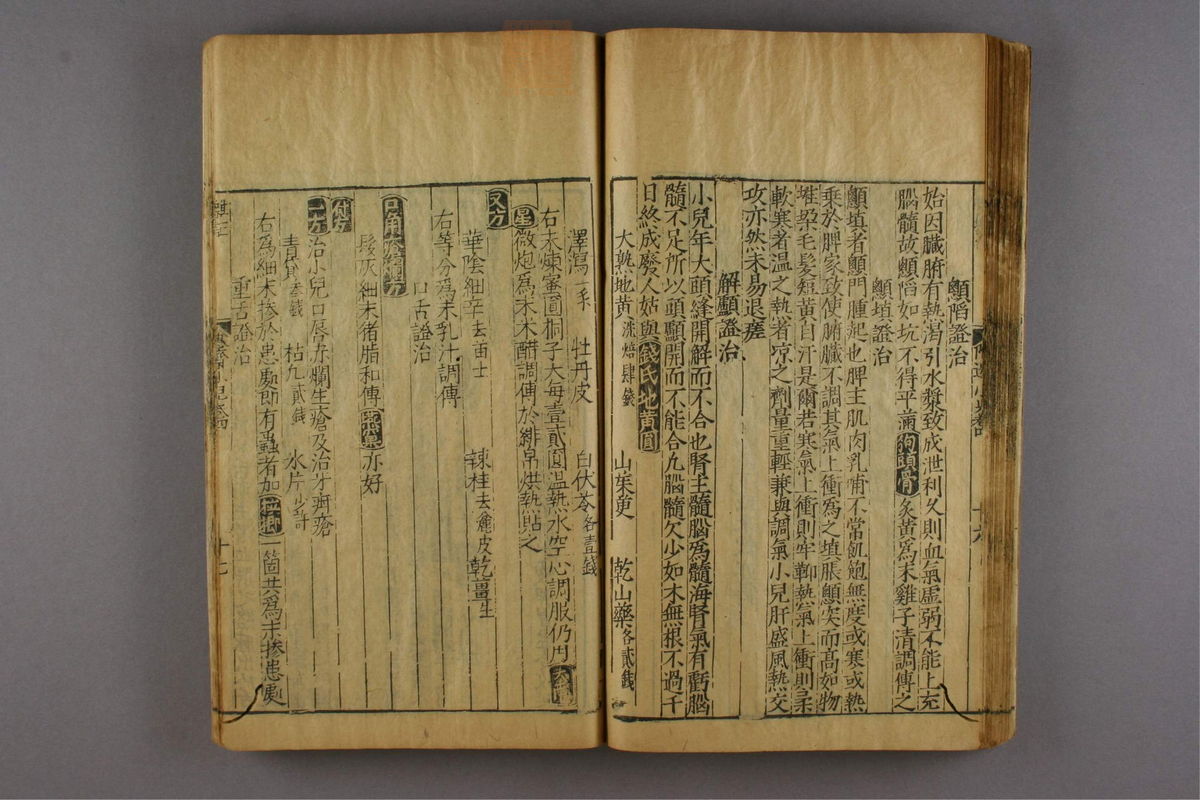 顖陷證治
始因臟腑有熱渴引水漿致成泄利久則血氣虛弱不能上充
腦髓故顖陷如坑不得平滿狗頭骨炙黃爲末雞子清調傅之
顖填證治
顖填者顖門腫起也脾主肌肉乳哺不常飢飽無度或寒或熱
乘於脾家致使腑臟不調其氣上衝爲之填脹顖突而高如物
堆垜毛髮短黃自汗是爾若寒氣上衝則牢鞕熱氣上衝則柔
軟寒者温之熱者凉之劑量重輕兼與調氣小兒肝盛風熱交
攻亦然未易退瘥
解顱證治
小兒年大頭縫開解而不合也腎主髓腦爲髓海腎氣有虧腦
髓不足所以頭顱開而不能合凡腦髓欠少如木無根不過千
日終成廢人姑與錢氏地黃圓
大熟地黃洗焙肆錢 山茱萸 乾山藥各貳錢
澤瀉 牡丹皮 白伏苓各壹錢
右末煉蜜圓桐子大每壹貳圓温熱水空心調服仍用
微炮爲末米醋調傅於緋帛烘熱貼之
又方
華陰細辛去苗土 辣桂去麄皮 乾薑生
右等分爲末乳汁調傅
口舌證治
髮灰細末猪脂和傅 亦好
一方治小兒口唇赤爛生瘡及治牙疳瘡
青黛 枯凡貳錢 水片少許
右爲細末摻於患處即有蟲者加 一箇共爲末摻患處
重舌證治
十七